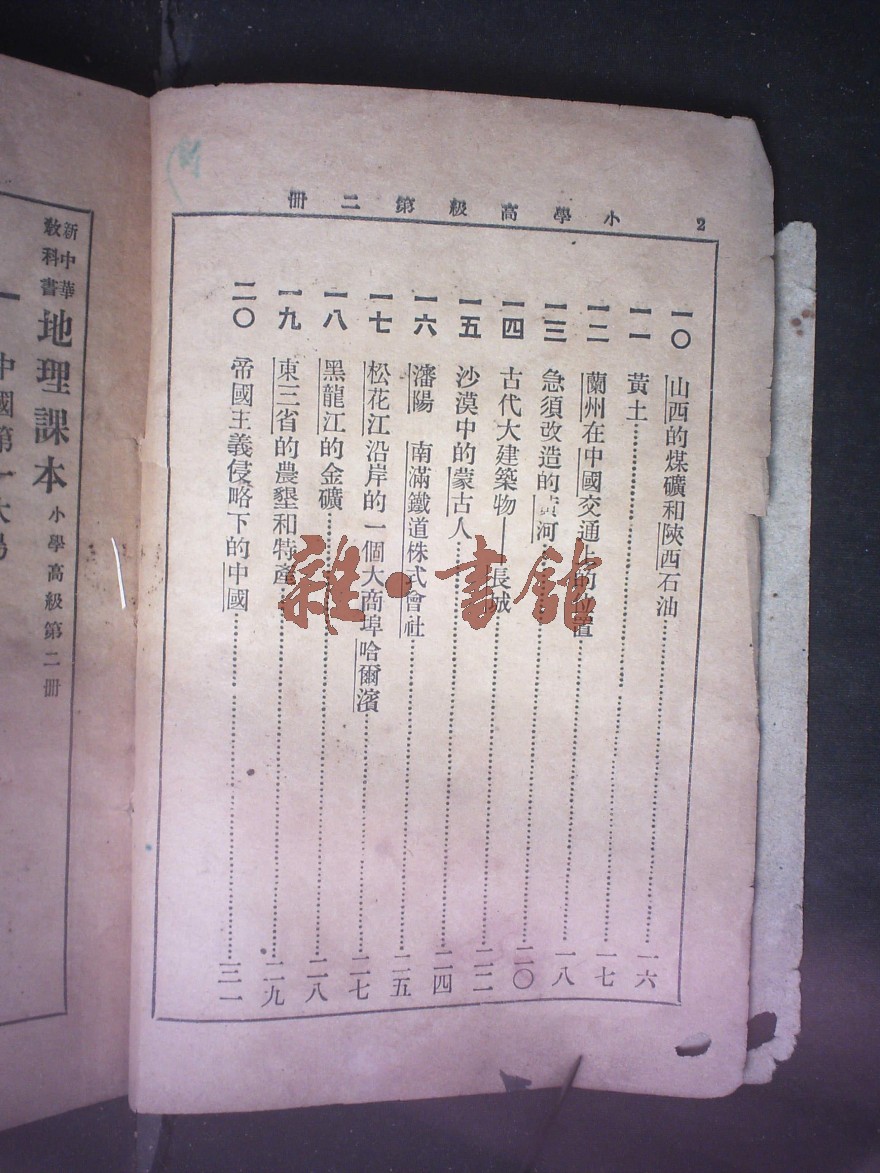 2
小學高級第二冊
一〇 山西的煤礦和陝西石油……一六
一一 黃土……一七
一二 蘭州在中國交通上的位置……一八
一三 急須改造的黃河……二〇
一四 古代大建築物——長城……二二
一五 沙漠中的蒙古人……二四
一六 瀋陽 南滿鐵道株式會社……二五
一七 松花江沿岸的一個大商埠哈爾濱……二七
一八 黑龍江的金礦……二八
一九 東三省的農墾和特產……二九
二〇 帝國主義侵略下的中國……三一
新中華教科書 地理課本 小學高級第二冊
一 中國第一大
雜·書館